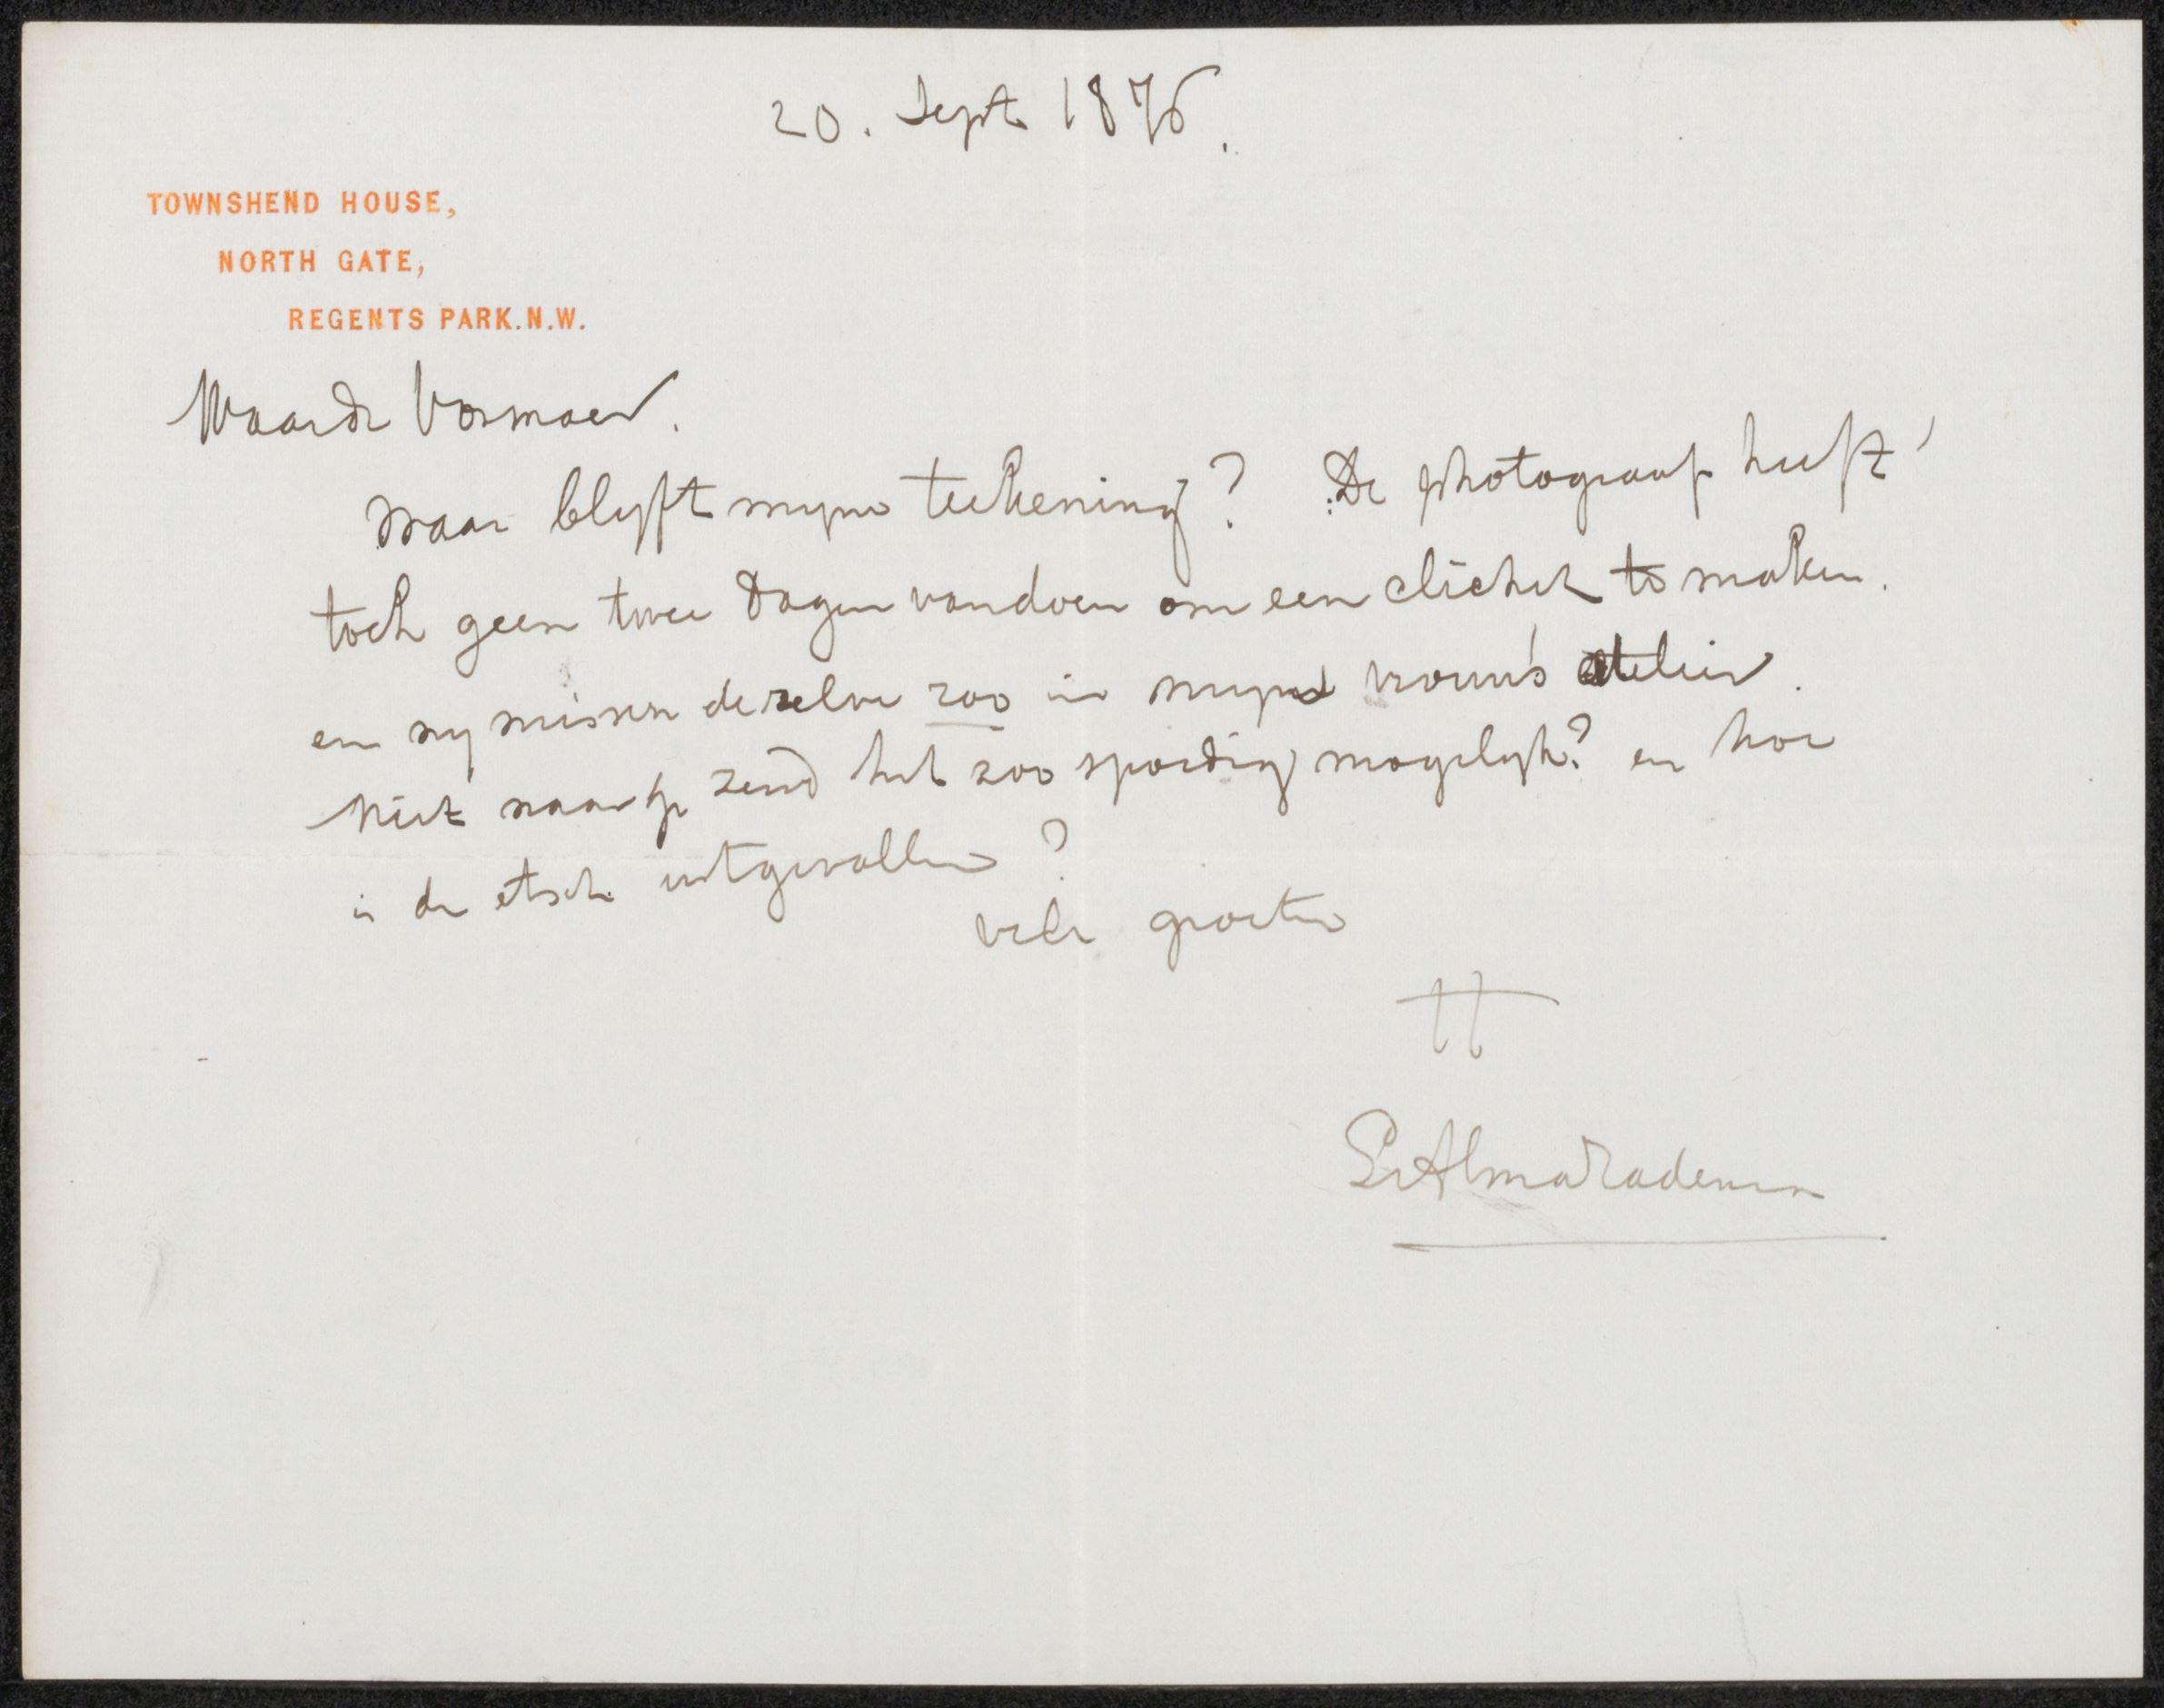 20. Sept 1876.
TOWNSHEND HOUSE,
NORTH GATE,
REGENTS PARK.N.W.
Waarde Vosmaer.
Waar blyft myne teekening? De photograaf heeft
toch geen twee dagen vandoen om een cliché te maken.
en wy missen dezelve zoo in myne vrouw's atelier.
Niet waar gy zend het zoo spoedig mogelyk? en hoe
is de etsch uitgevallen?
vele groeten
tt
L Alma Tadema